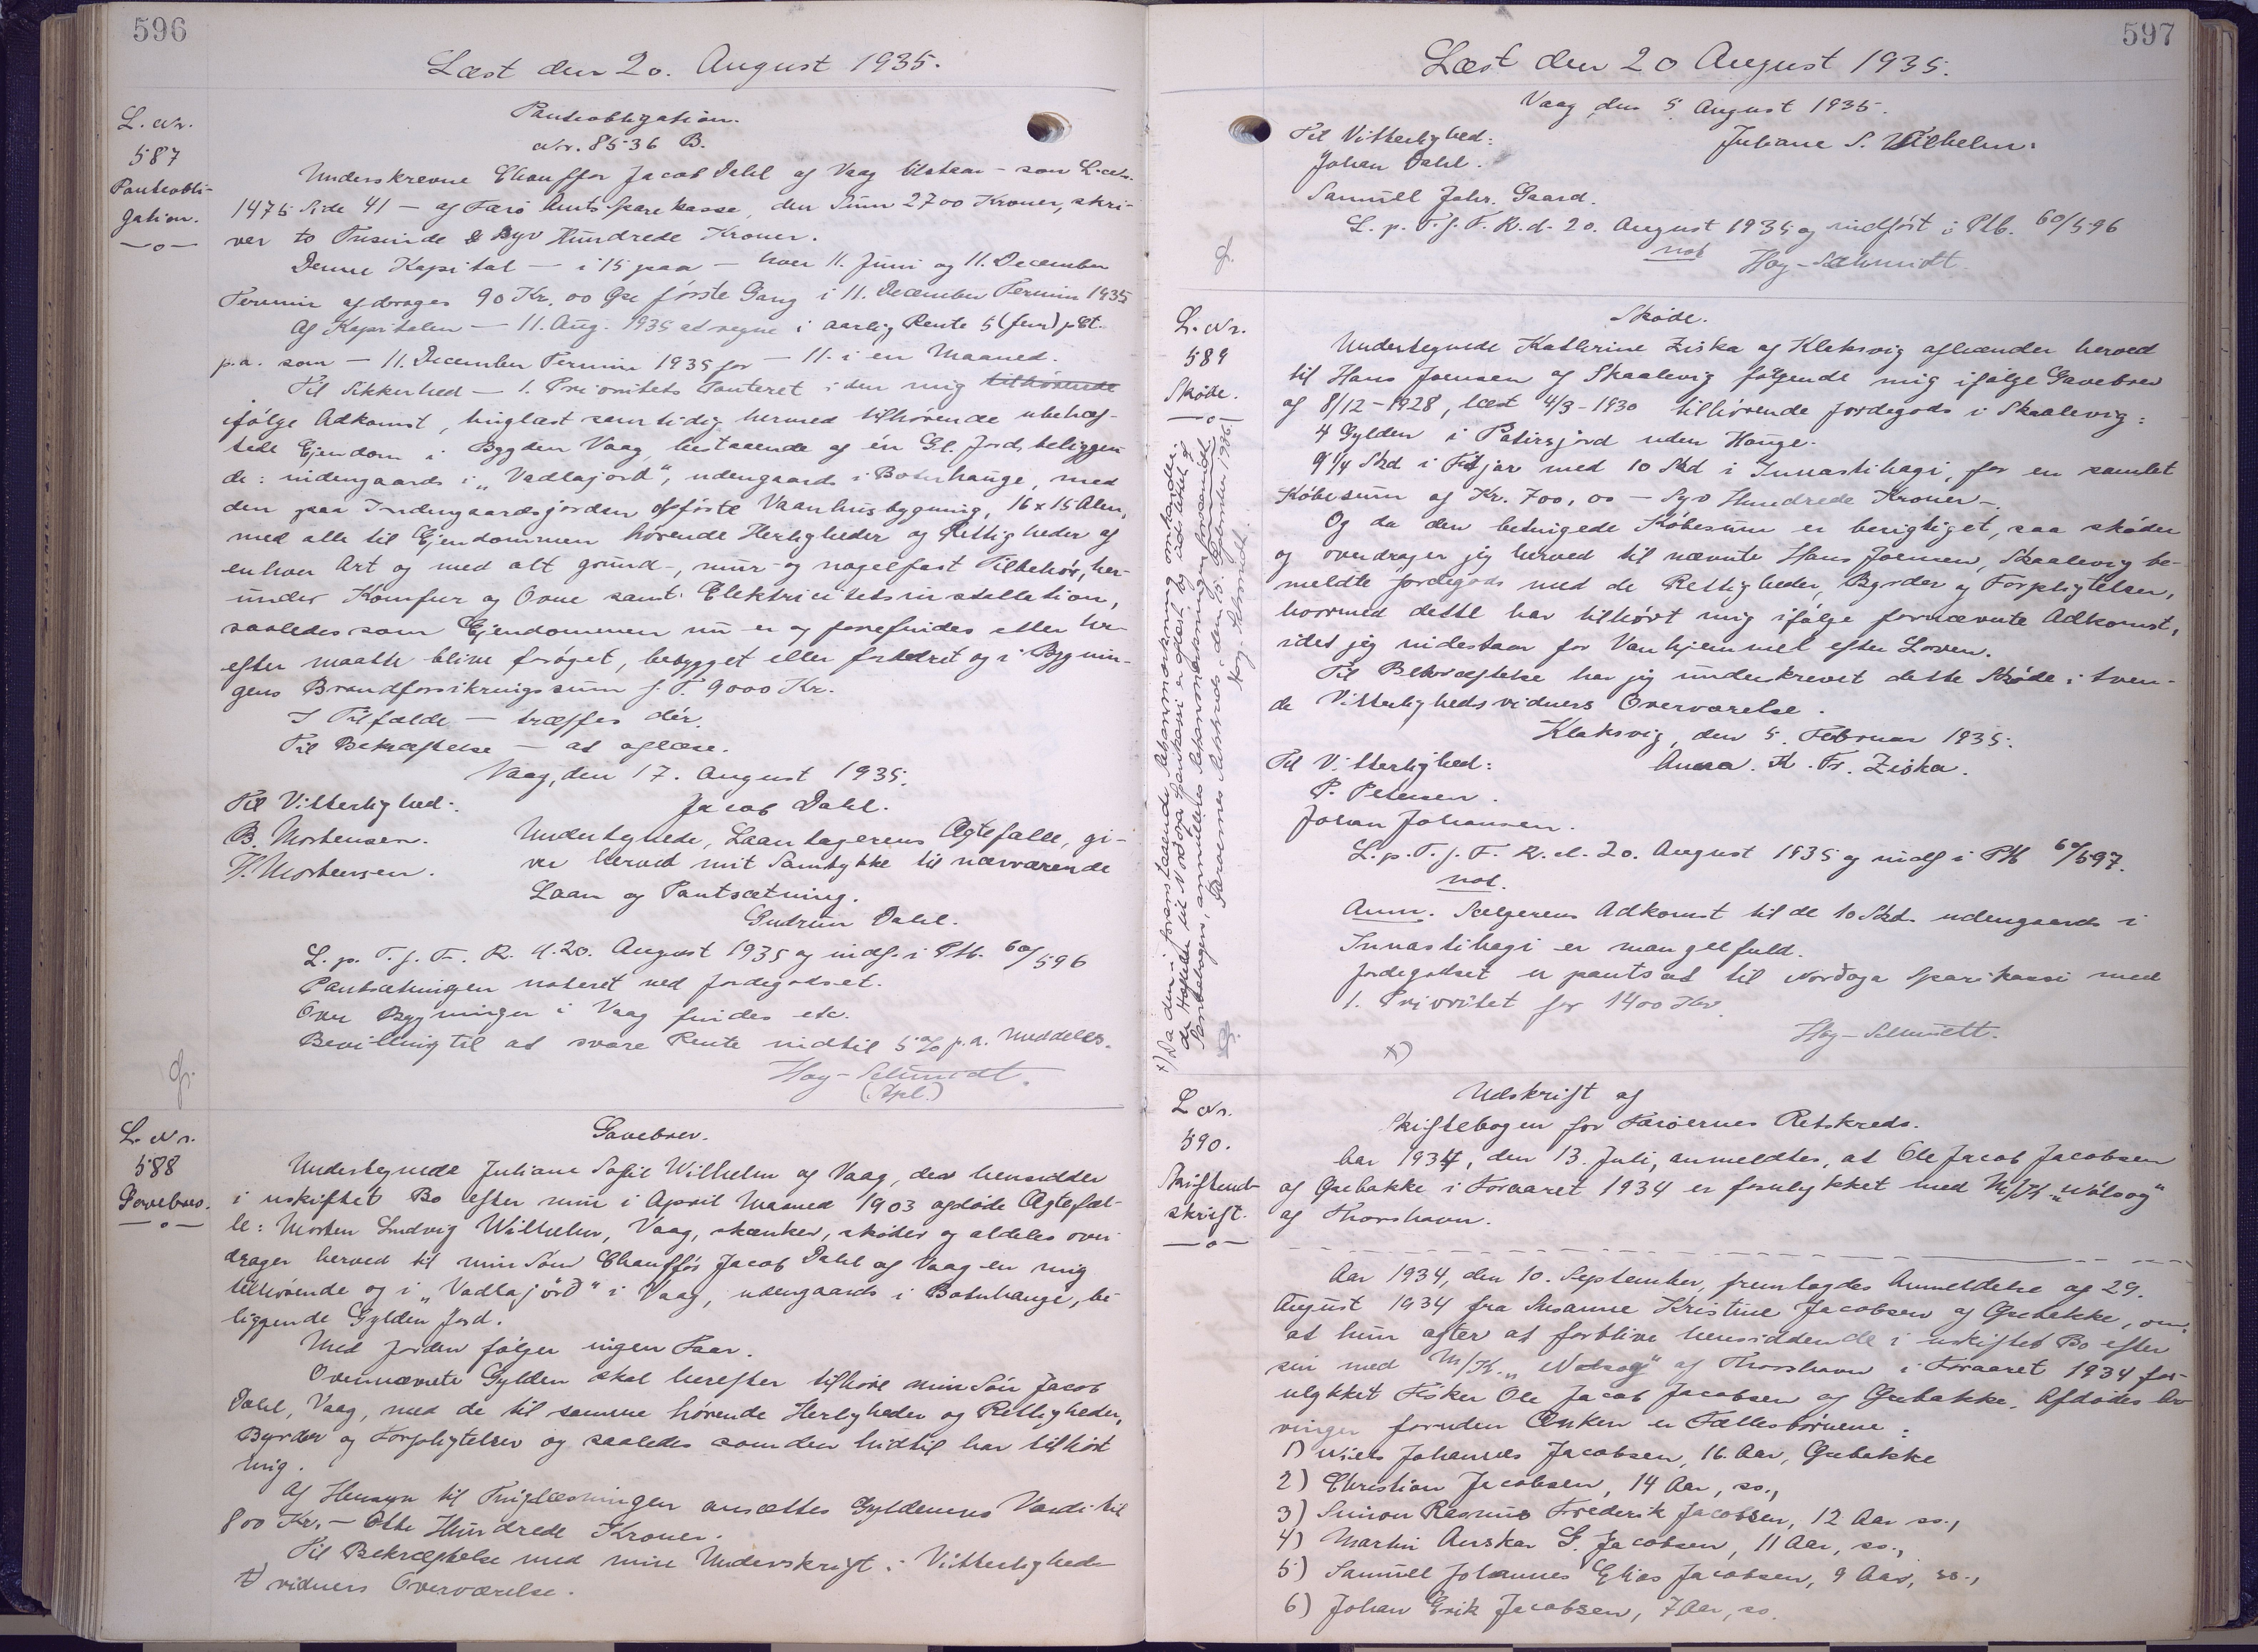 596
Læst den 20. August 1935.
L. Nr.
587
Panteobli-
gation.
—o—
Panteobligation.
Nr. 8536 B.
Underskrevne Chauffør Jacob Dahl af Vaag tilstaar – som L. Nr.
1475 Side 41 – af Færø Amts Sparekasse, den Sum 2700 Kroner, skri-
ver to Tusinde & Syv Hundrede Kroner.
Denne Kapital – i 15 paa – hver 11. Juni og 11. December
Termin afdrages 90 Kr. 00 Øre første Gang i 11. December Termin 1935
Af Kapitalen – 11. Aug. 1935 at regne i aarlig Rente 5 (fem) pCt.
p.a. som – 11. December Termin 1935 for – 11. i en Maaned.
Til Sikkerhed – 1. Prioritets Panteret i den mig tilhørende
ifølge Adkomst, tinglæst samtidig hermed tilhørende ubehæf-
tede Ejendom i Bygden Vaag, bestaaende af én Gl. Jord, beliggen-
de: indengaards i „Vadlajørd“, udengaards i Botnhauge, med
den paa Indengaardsjorden opførte Vaanhusbygning, 16 x 15 Alen,
med alle til Ejendommen hørende Herligheder og Rettigheder af
enhver Art og med alt grund-, mur- og nagelfast Tilbehør, her-
under Komfur og Ovne samt Elektricitetsinstallation,
saaledes som Ejendommen nu er og forefindes eller her-
efter maatte blive forøget, bebygget eller forbedret og i Bygnin-
gens Brandforsikringssum f. T. 9000 Kr.
I Tilfælde – træffes dér.
Til Bekræftelse – at aflæse.
Vaag, den 17. August 1935.
Til Vitterlighed:
Jacob Dahl.
B. Mortensen.
H. Mortensen.
Undertegnede, Laantagerens Ægtefælle, gi-
ver herved mit Samtykke til nærværende
Laan og Pantsætning.
Gudrun Dahl.
L. p. T. f. F. R. d. 20. August 1935 og indf. i Ptb. 60/596
Pantsætningen noteret ved Jordegodset.
Over Bygninger i Vaag findes etc.
Bevilling til at svare Rente indtil 5% p.a. meddeles.
Høy-Schmidt.
(Kpl.)
L. Nr.
588
Gavebrev.
—o—
Gavebrev.
Undertegnede Juliane Sofie Wilhelm af Vaag, der hensidder
i uskiftet Bo efter min i April Maaned 1903 afdøde Ægtefæl-
le: Morten Ludvig Wilhelm, Vaag, skænker, skøder og aldeles over-
drager herved til min Søn Chauffør Jacob Dahl af Vaag en mig
tilhørende og i „Vadlajørð“ i Vaag, udengaards i Botnhauge, be-
liggende Gylden Jord.
Med Jorden følger ingen Faar.
Ovennævnte Gylden skal herefter tilhøre min Søn Jacob
Dahl, Vaag, med de til samme hørende Herligheder og Rettigheder,
Byrder og Forpligtelser og saaledes som den hidtil har tilhørt
mig.
Af Hensyn til Tinglæsningen ansættes Gyldenens Værdi til
800 Kr. – Otte Hundrede Kroner.
Til Bekræftelse med min Underskrift i Vitterligheds-
vidners Overværelse.
597
Læst den 20 August 1935.
Vaag, den 5. August 1935.
Til Vitterlighed:
Juliane S. Wilhelm.
Johan Dahl.
Samuell Johs. Gaard.
L. p. T. f. F. R. d. 20. August 1935 og indført i Ptb. 60/596
not
Høy-Schmidt.
L. Nr.
589
Skøde.
—o—
Skøde.
Undertegnede Kathrine Ziska af Klaksvig afhænder herved
til Hans Joensen af Skaalevig følgende mig ifølge Gavebrev
af 8/12-1928, læst 4/3-1930 tilhørende Jordegods i Skaalevig:
4 Gylden i Patirsjørd uden Hauge.
9 1/4 Skd i Fitjar med 10 Skd i Innastihagi, for en samlet
Købesum af Kr. 700,00 – Syv Hundrede Kroner –.
Og da den betingede Købesum er berigtiget, saa skøder
og overdrager jeg herved til nævnte Hans Joensen, Skaalevig be-
meldte Jordegods med de Rettigheder, Byrder og Forpligtelser,
hvormed dette har tilhørt mig ifølge fornævnte Adkomst,
idet jeg indestaar for Vanhjemmel efter Loven.
Til Bekræftelse har jeg underskrevet dette Skøde i tven-
de Vitterlighedsvidners Overværelse.
Klaksvig, den 5. Februar 1935.
Til Vitterlighed:
Anna. K. Fr. Ziska.
P. Petersen.
Johan Johansen.
L. p. T. f. F. R. d. 20. August 1935 og indf i Ptb 60/597.
not.
Anm. Sælgerens Adkomst til de 10 Skd. udengaards i
Innastihagi er mangelfuld.
Jordegodset er pantsat til Norðoya Sparikassi med
1. Prioritet for 1400 Kr.
Høy-Schmidt.
x)
x) Da den i foranstaaende Retsanmærkning omhandle-
de Hæftelse til Norðoya Sparikassi er aflyst og udslettet af
Pantebogen, annulleres Retsanmærkningen forsaavidt.
Færøernes Retskreds, den 15. 1936.
Høy-Schmidt.
L Nr.
590.
Skifteud-
skrift.
—o—
Udskrift af
Skiftebogen for Færøernes Retskreds.
Aar 1934, den 13. Juli, anmeldtes, at Ole Jacob Jacobsen
af Glibakke i Foraaret 1934 er forulykket med M/K „Nolsoy“
af Thorshavn.
Aar 1934, den 10. September, fremlagdes Anmeldelse af 29.
August 1934 fra Susanne Kristine Jacobsen af Gæbakke, om,
at hun agter at forblive hensiddende i uskiftet Bo efter
sin med M/K. „Nolsoy“ af Thorshavn i Foraaret 1934 for-
ulykket Fisker Ole Jacob Jacobsen af Gæbakke. Afdødes Ar-
vinger foruden Enken er Fællesbørnene:
1) Niels Johannes Jacobsen, 16. Aar, Gæbakke
2) Christian Jacobsen, 14 Aar, ss.,
3) Simon Rasmus Frederik Jacobsen, 12 Aar ss.,
4) Martin Anskar G. Jacobsen, 11 Aar, ss.,
5) Samuell Johannes Elias Jacobsen, 9 Aar, ss.,
6) Johan Erik Jacobsen, 7 Aar, ss.